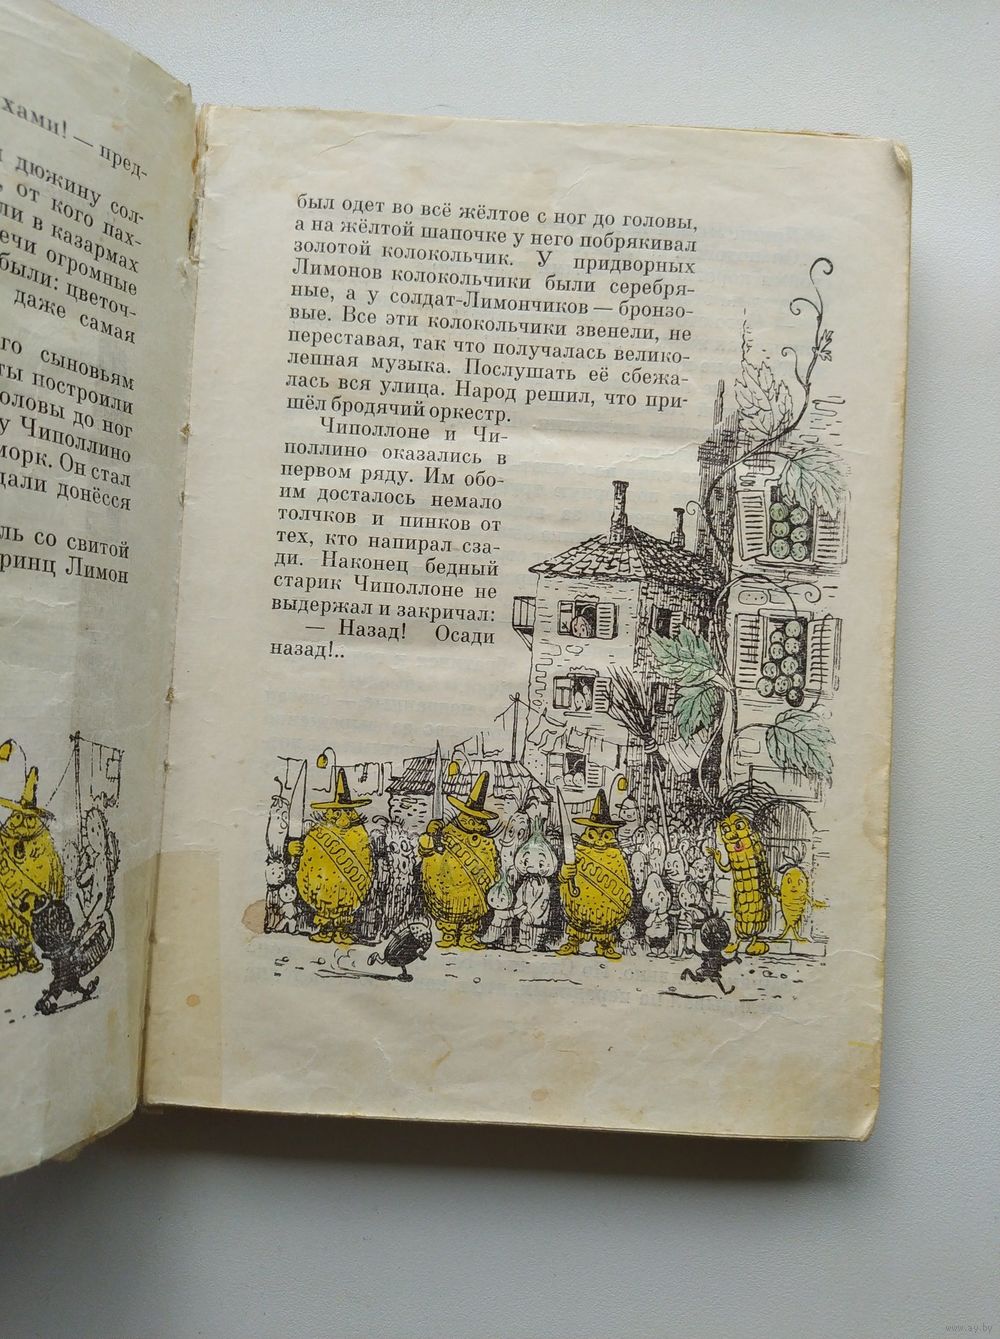 хами! — пред-
дюжину сол-
от кого пах-
ли в казармах
ечи огромные
были: цветоч-
даже самая
го сыновьям
ты построили
оловы до ног
у Чиполлино
морк. Он стал
дали донёсся
ль со свитой
ринц Лимон
был одет во всё жёлтое с ног до головы,
а на жёлтой шапочке у него побрякивал
золотой колокольчик. У придворных
Лимонов колокольчики были серебря-
ные, а у солдат-Лимончиков — бронзо-
вые. Все эти колокольчики звенели, не
переставая, так что получалась велико-
лепная музыка. Послушать её сбежа-
лась вся улица. Народ решил, что при-
шёл бродячий оркестр.
Чиполлоне и Чи-
поллино оказались в
первом ряду. Им обо-
им досталось немало
толчков и пинков от
тех, кто напирал сза-
ди. Наконец бедный
старик Чиполлоне не
выдержал и закричал:
— Назад! Осади
назад!..
www.ay.by